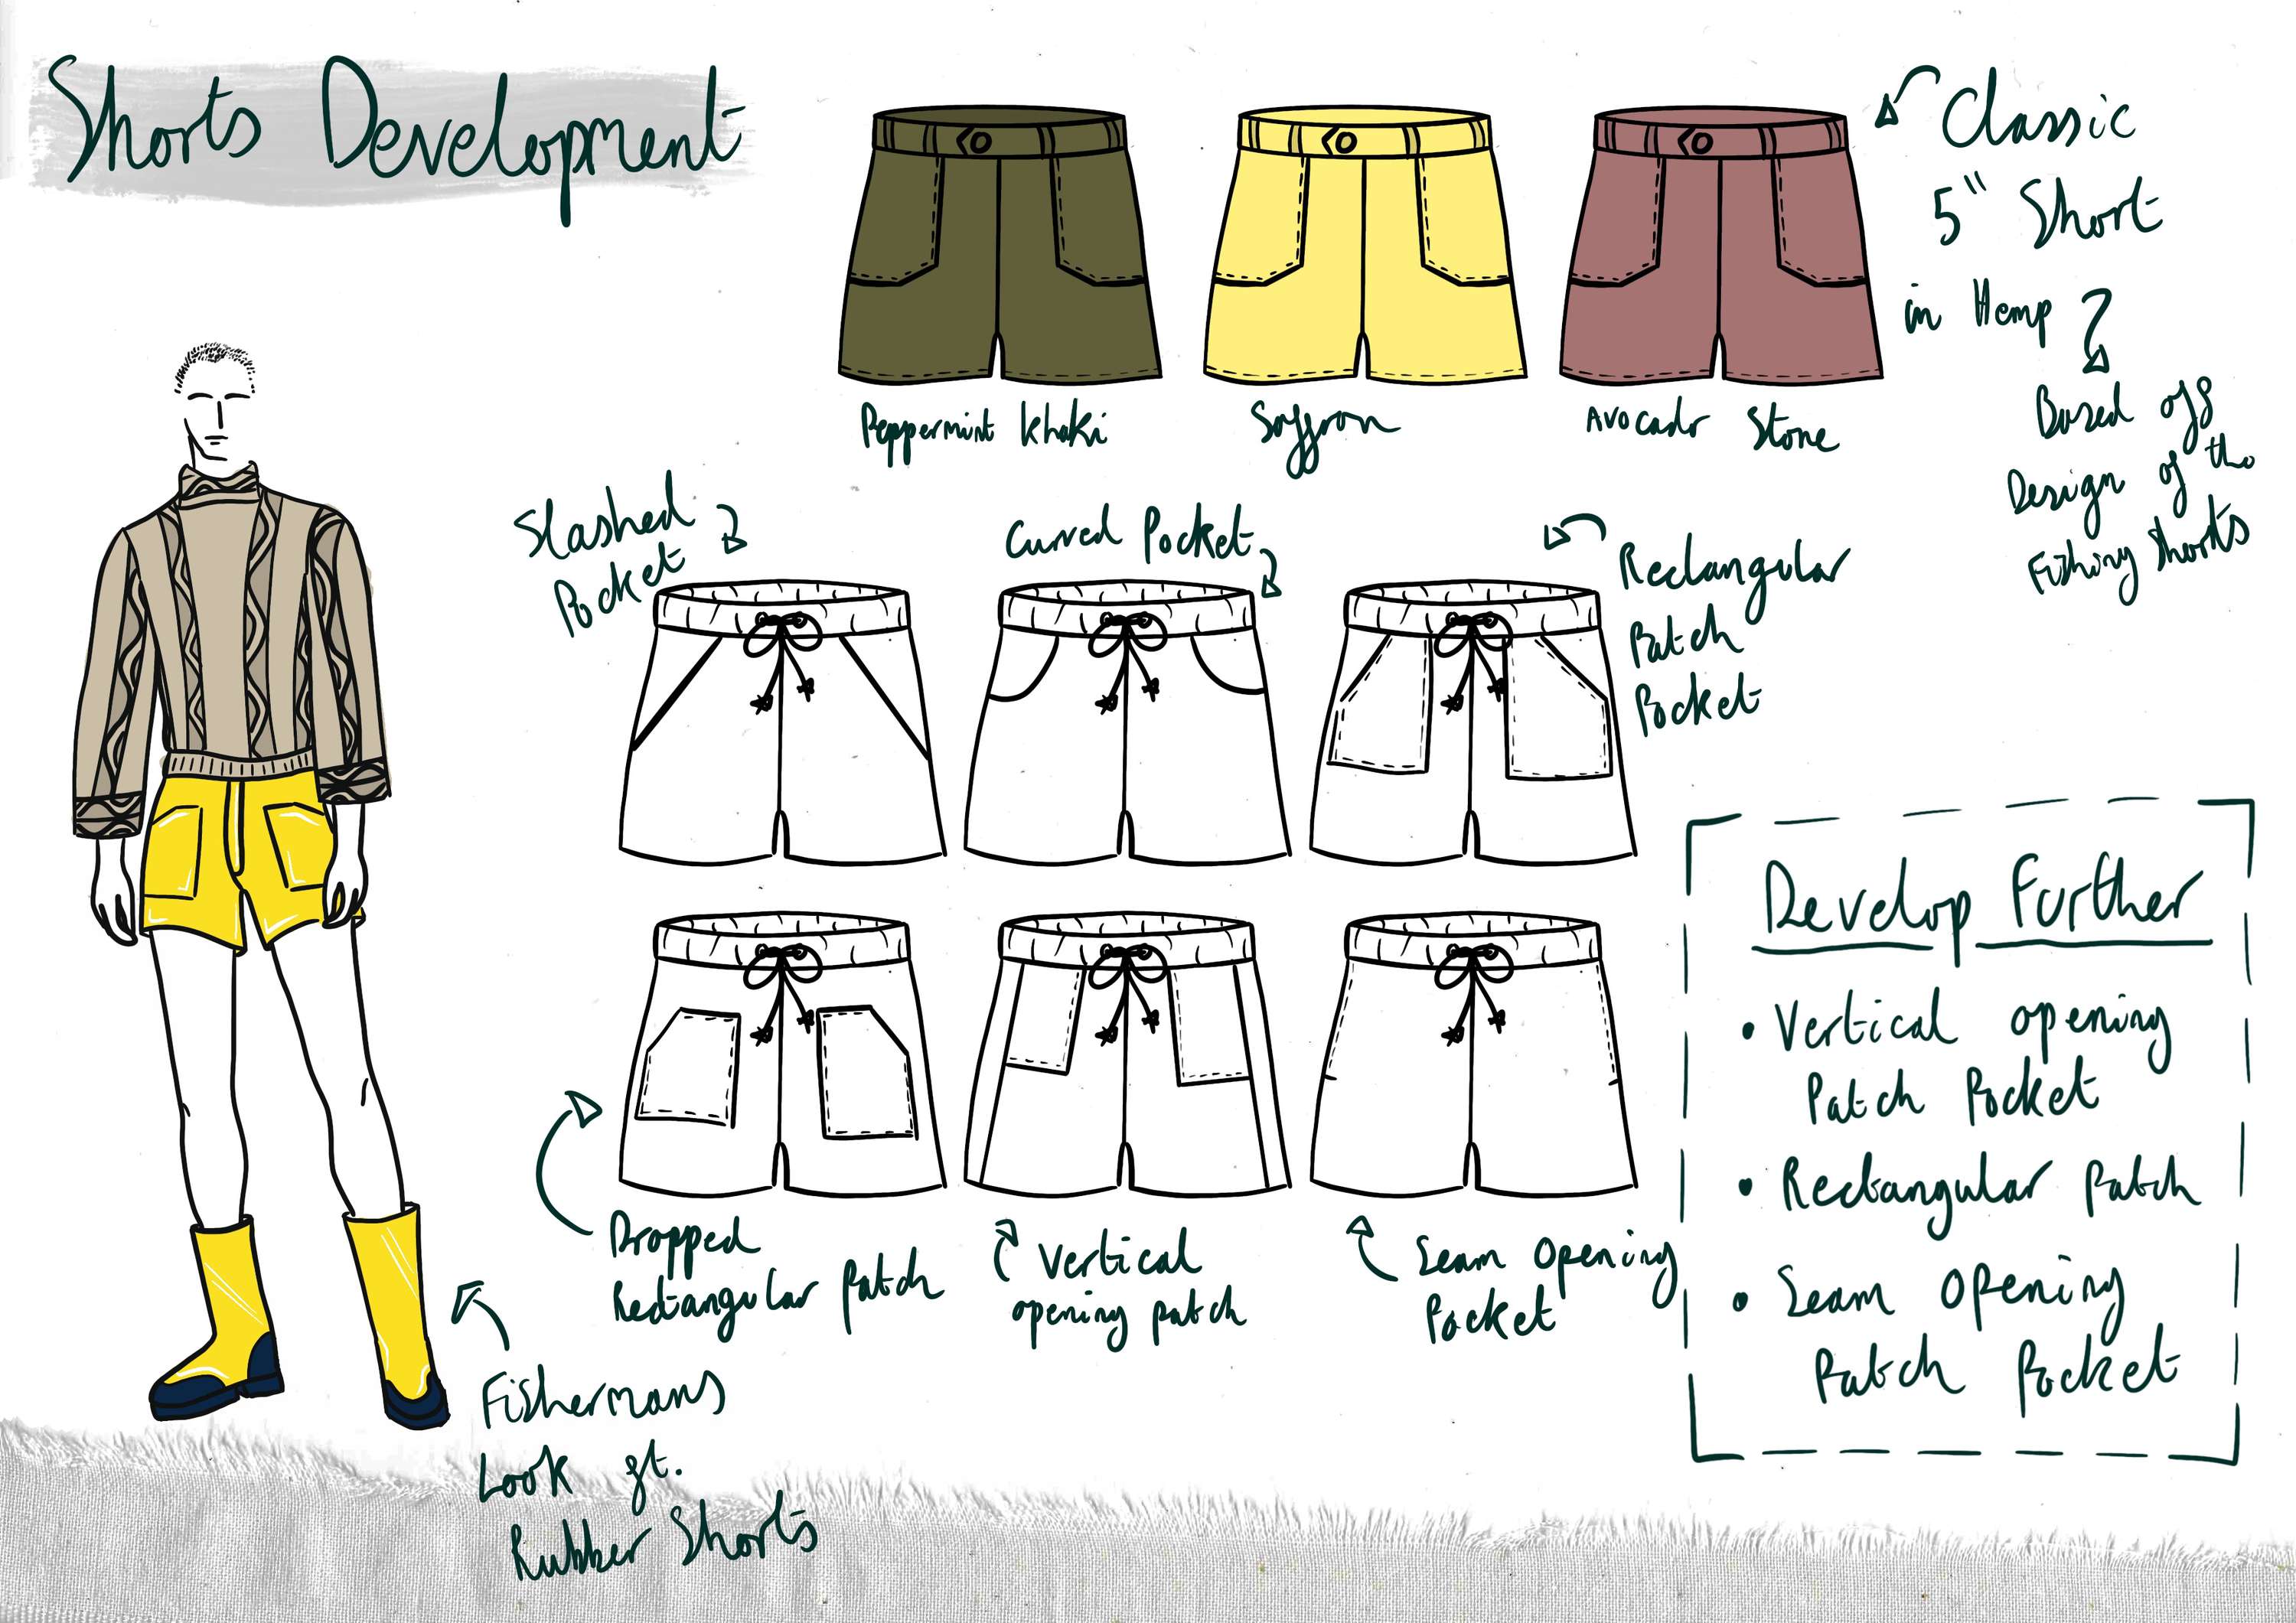 Shorts Development
Classic
5" Short
in Hemp
Based off
Design of the
Fishing Shorts
Peppermint Khaki
Saffron
Avocado Stone
Slashed
Pocket
Curved Pocket
Rectangular
Patch
Pocket
Dropped
Rectangular Patch
Vertical
opening patch
Seam Opening
Pocket
Fishermans
Look ft.
Rubber Shorts
Develop Further
• Vertical opening
Patch Pocket
• Rectangular Patch
• Seam Opening
Patch Pocket